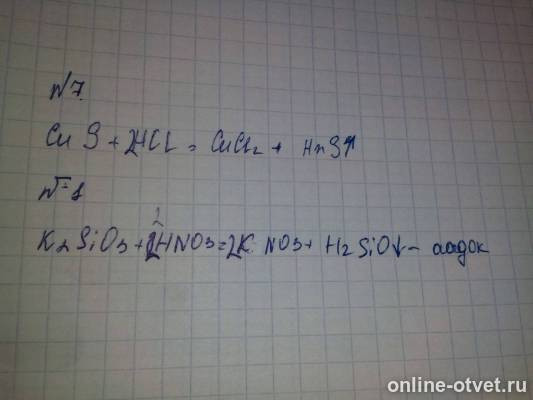 №7.
CuS + 2HCl = CuCl2 + H2S↑
№1
2
K2SiO3 + 2HNO3 = 2KNO3 + H2SiO↓ - осадок
online-otvet.ru